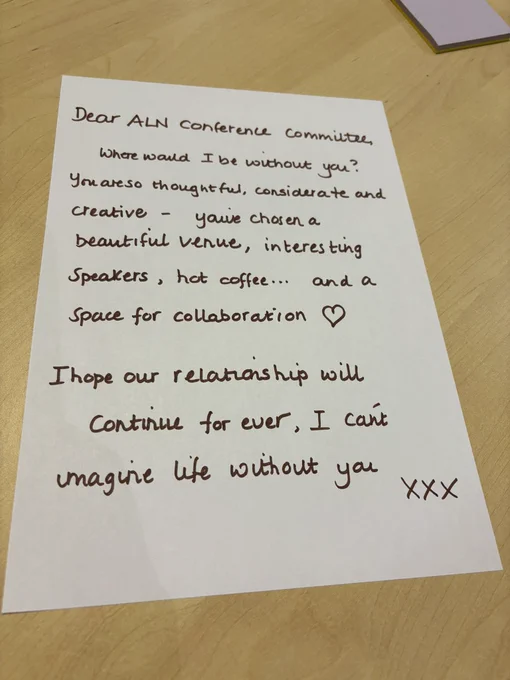 Dear ALN Conference Committee,
Where would I be without you?
You are so thoughtful, considerate and
creative – you've chosen a
beautiful venue, interesting
speakers, hot coffee... and a
space for collaboration ♡
I hope our relationship will
continue for ever, I can't
imagine life without you
xxx